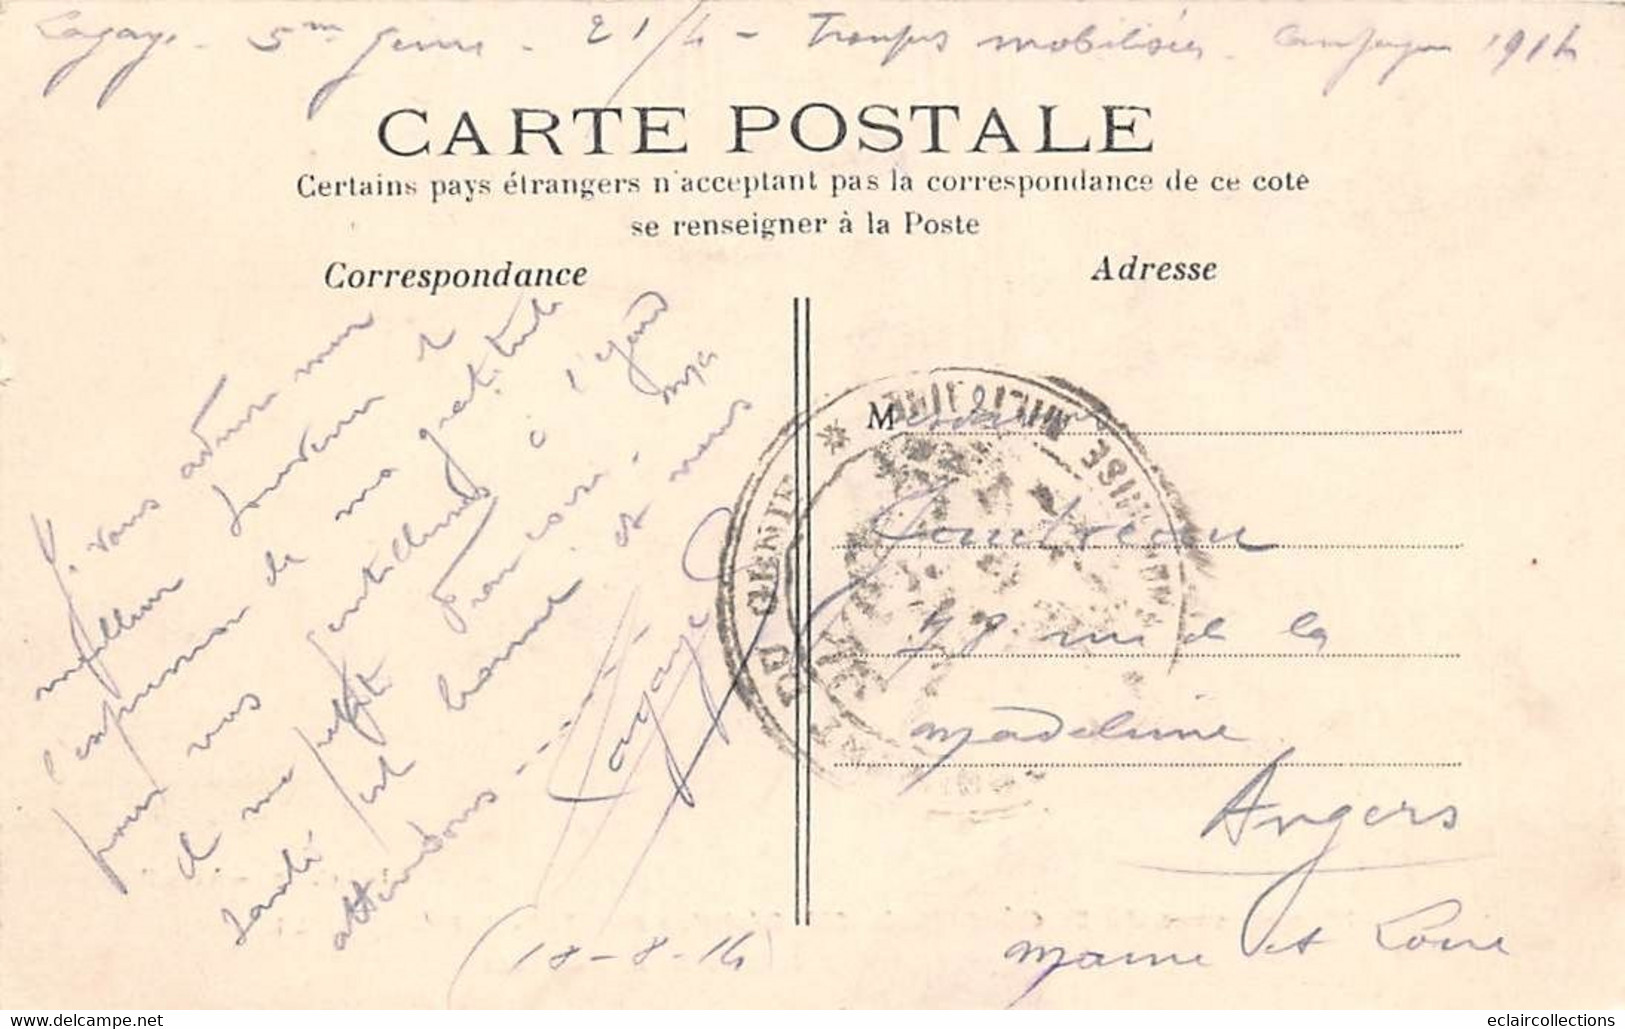 Lagaye - 5me Génie - 21/4 - Troupes mobilisées. Campagne 1914
CARTE POSTALE
Certains pays étrangers n'acceptant pas la correspondance de ce coté
se renseigner à la Poste
Correspondance
Adresse
Je vous adresse mon
meilleur souvenir et
l'expression de ma gratitude
pour vos gentillesses à l'égard
de ma petite Françoise. Ma
santé est bonne et nous
attendons
Lagaye
(18-8-14)
M
MILITAIRE
DU GENIE
Gautreau
48 rue de la
Madeleine
Angers
Maine et Loire
eclaircollections.delcampe.net
eclaircollections